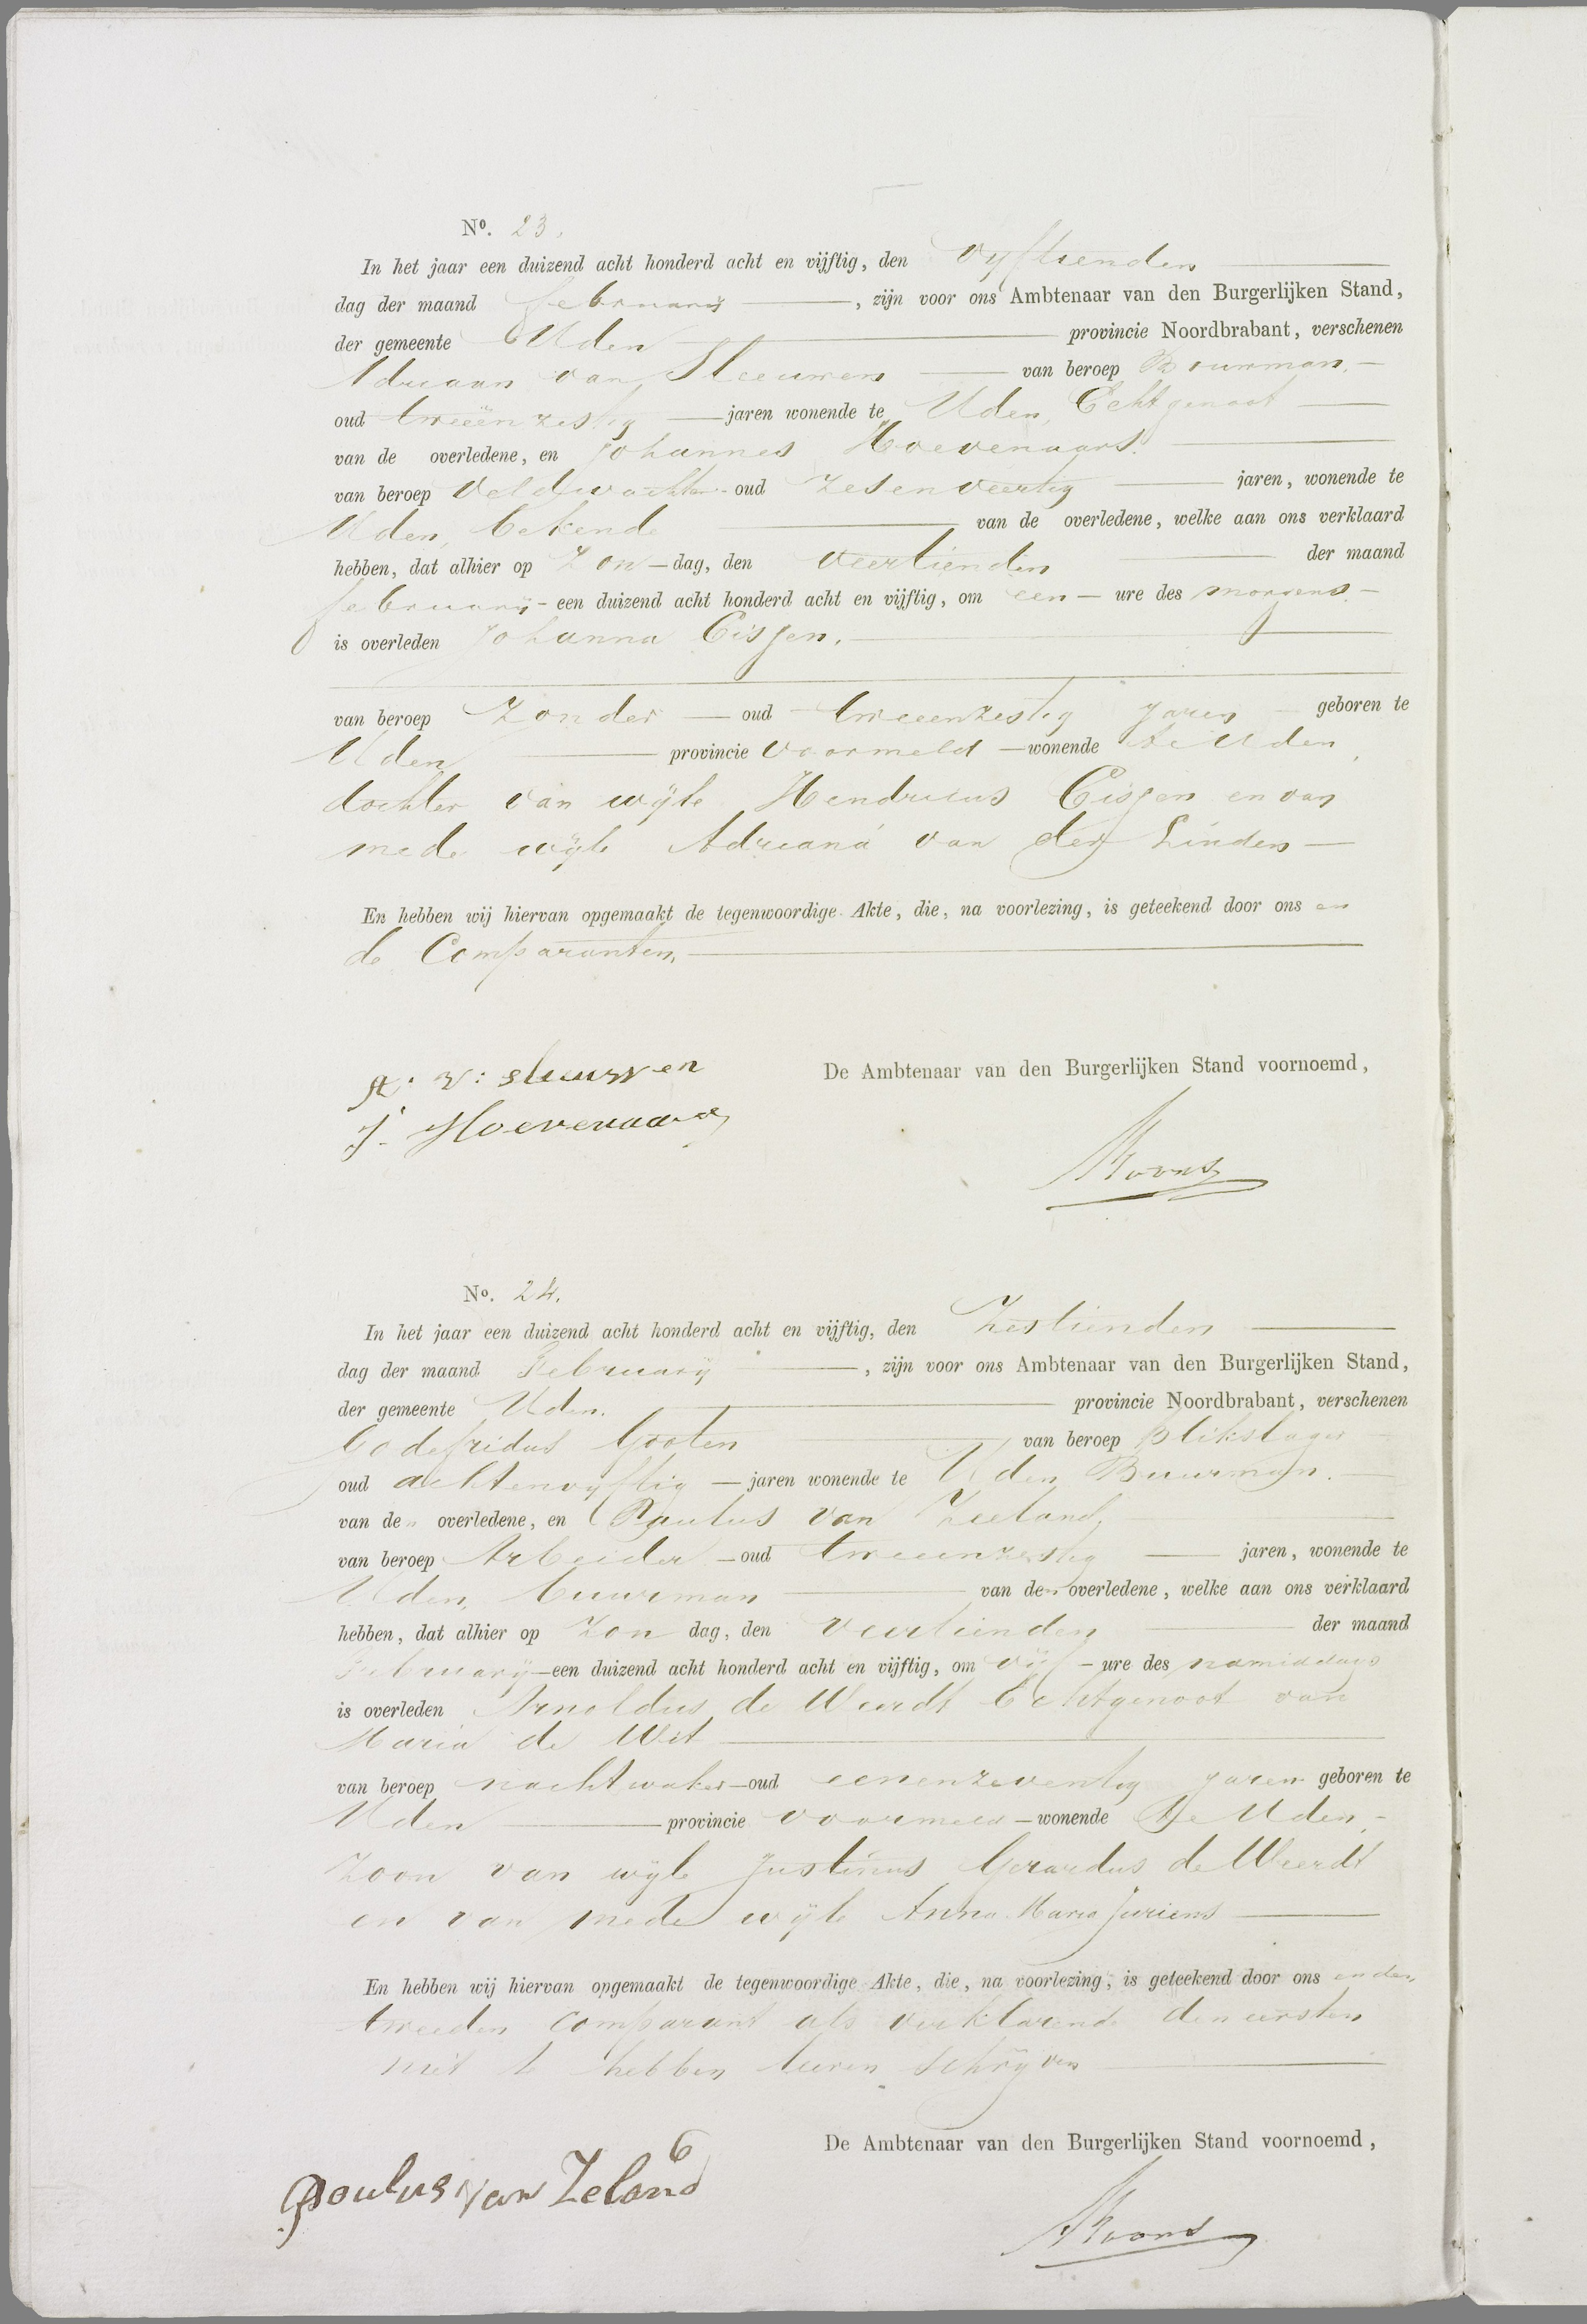 Nº. 23.
In het jaar een duizend acht honderd acht en vijftig, den vyftienden
dag der maand februarij, zijn voor ons Ambtenaar van den Burgerlijken Stand,
der gemeente Uden provincie Noordbrabant, verschenen
Adriaan van Sleeuwen van beroep Bouwman.
oud tweeënzestig jaren wonende te Uden, Echtgenoot
van de overledene, en Johannes Hoevenaars.
van beroep Veldwachter oud zesenveertig jaren, wonende te
Uden, bekende van de overledene, welke aan ons verklaard
hebben, dat alhier op Zon-dag, den veertienden der maand
februarij een duizend acht honderd acht en vijftig, om een ure des morgens
is overleden Johanna Eisjen.
van beroep Zonder oud tweeenzestig jaren geboren te
Uden provincie voormeld wonende te Uden,
dochter van wijle Hendricus Eisjen en van
mede wijle Adriana van der Linden
En hebben wij hiervan opgemaakt de tegenwoordige Akte, die, na voorlezing, is geteekend door ons en
de Comparanten,
De Ambtenaar van den Burgerlijken Stand voornoemd,
A: v: sleuwen
J. Hoevenaars
Nº. 24.
In het jaar een duizend acht honderd acht en vijftig, den Zestienden
dag der maand Februarij, zijn voor ons Ambtenaar van den Burgerlijken Stand,
der gemeente Uden. provincie Noordbrabant, verschenen
Godefridus Grooten van beroep Blikslager
oud achtenvyftig jaren wonende te Uden, Buurman.
van den overledene, en Paulus van Zeeland,
van beroep Arbeider oud tweeenzestig jaren, wonende te
Uden, buurman van den overledene, welke aan ons verklaard
hebben, dat alhier op Zon dag, den veertienden der maand
Februarij een duizend acht honderd acht en vijftig, om vijf ure des namiddags
is overleden Arnoldus de Weerdt Echtgenoot van
Maria de Wit
van beroep nachtwaker oud eenenzeventig jaren geboren te
Uden provincie voormeld wonende te Uden,
Zoon van wijle Justinus Gerardus de Weerdt
en van mede wijle Anna Maria Juriens
En hebben wij hiervan opgemaakt de tegenwoordige Akte, die, na voorlezing, is geteekend door ons en den
tweeden Comparant als verklarende den eersten
niet te hebben leeren schrijven
De Ambtenaar van den Burgerlijken Stand voornoemd,
Poulus van Zeland